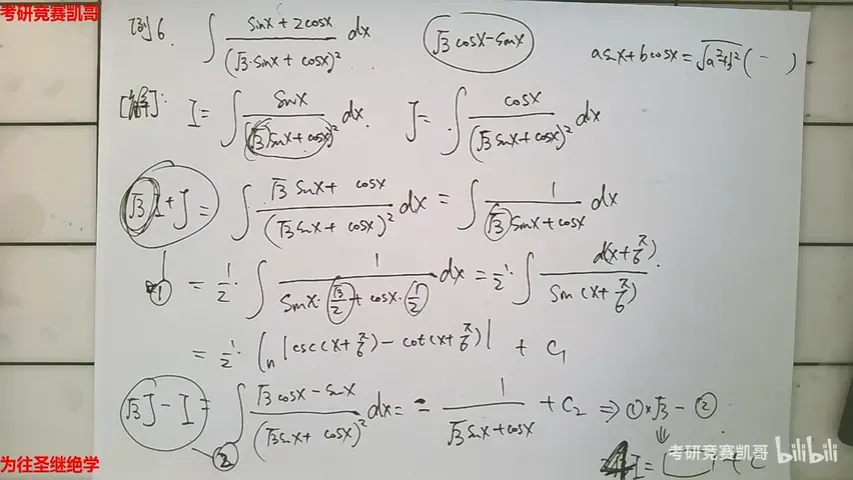 考研竞赛凯哥
例6. ∫ (sinx + 2cosx)/(√3·sinx + cosx)² dx √3 cosx - sinx
asinx + bcosx = √(a²+b²) (⋯ )
[解]: I = ∫ sinx/(√3 sinx + cosx)² dx. J = ∫ cosx/(√3 sinx + cosx)² dx
√3 I + J = ∫ (√3 sinx + cosx)/(√3 sinx + cosx)² dx = ∫ 1/(√3 sinx + cosx) dx
① = 1/2 · ∫ 1/(sinx · √3/2 + cosx · 1/2) dx = 1/2 · ∫ d(x + π/6)/sin(x + π/6).
= 1/2 · ln |csc(x + π/6) - cot(x + π/6)| + C₁
√3 J - I = ∫ (√3 cosx - sinx)/(√3 sinx + cosx)² dx = - 1/(√3 sinx + cosx) + C₂ ⇒ ①×√3 - ②
② ⇓
4I = □ + C
考研竞赛凯哥 bilibili
为往圣继绝学